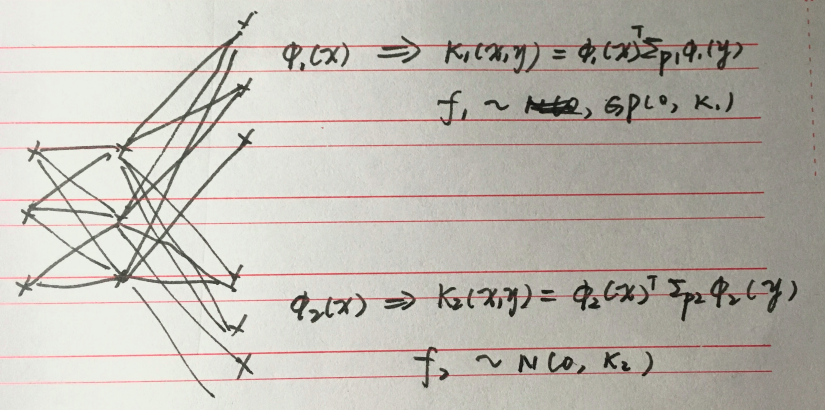 ϕ₁(x) ⟹ K₁(x,y) = ϕ₁(x)ᵀΣp₁ϕ₁(y)
f₁ ~ GP(0, K₁)
ϕ₂(x) ⟹ K₂(x,y) = ϕ₂(x)ᵀ Σp₂ ϕ₂(y)
f₂ ~ N(0, K₂)